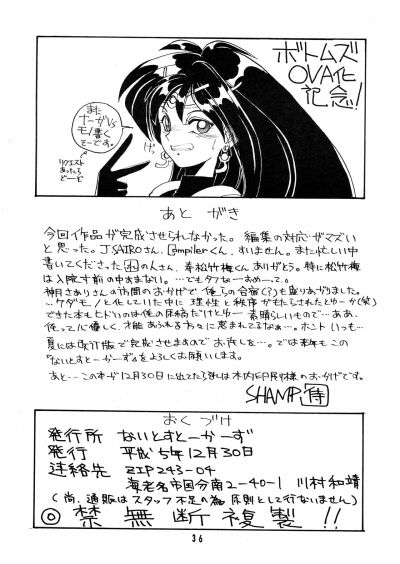 ボトムズ
OVA化
記念!
また
ナーガVS
モノ書く
そーです。
リクエスト
あったら
どーぞ
げっ
あと がき
今回作品が完成させられなかった。編集の対応がマズい
と思った。J.SAIROさん、@mpilerくん、すいません。また忙しい中
書いてくださった のんさん、寿松竹梅くんありがとう。特に松竹梅
は入院寸前の中すまない。…でもタフなーおめーって。
神月さありさんの本間のおかげで俺らの合宿(?)も盛りあがりました。
…ケダモノと化していた中に理性と秩序がもたらされたとゆーか(笑)
できた本もヒドいのは俺の原稿だけとゆー素晴らしいもので…ああ、
俺って心優しく、才能あふれる方々に恵まれてるなぁ…。ホントいつも…
夏には改訂版で完成させますのでお許しを…。では来年もこの
"ないとすとーかーず"をよろしくお願いします。
あと…この本が12月30日に出てたら 木内印刷様のおかげです。
SHAMP 侍
おくづけ
発行所 ないとすとーかーず
発行 平成5年12月30日
連絡先 ZIP243-04
海老名市国分南2-40-1 川村和靖
(尚、通販はスタッフ不足の為 原則として行ないません)
◎禁無断複製!!
36